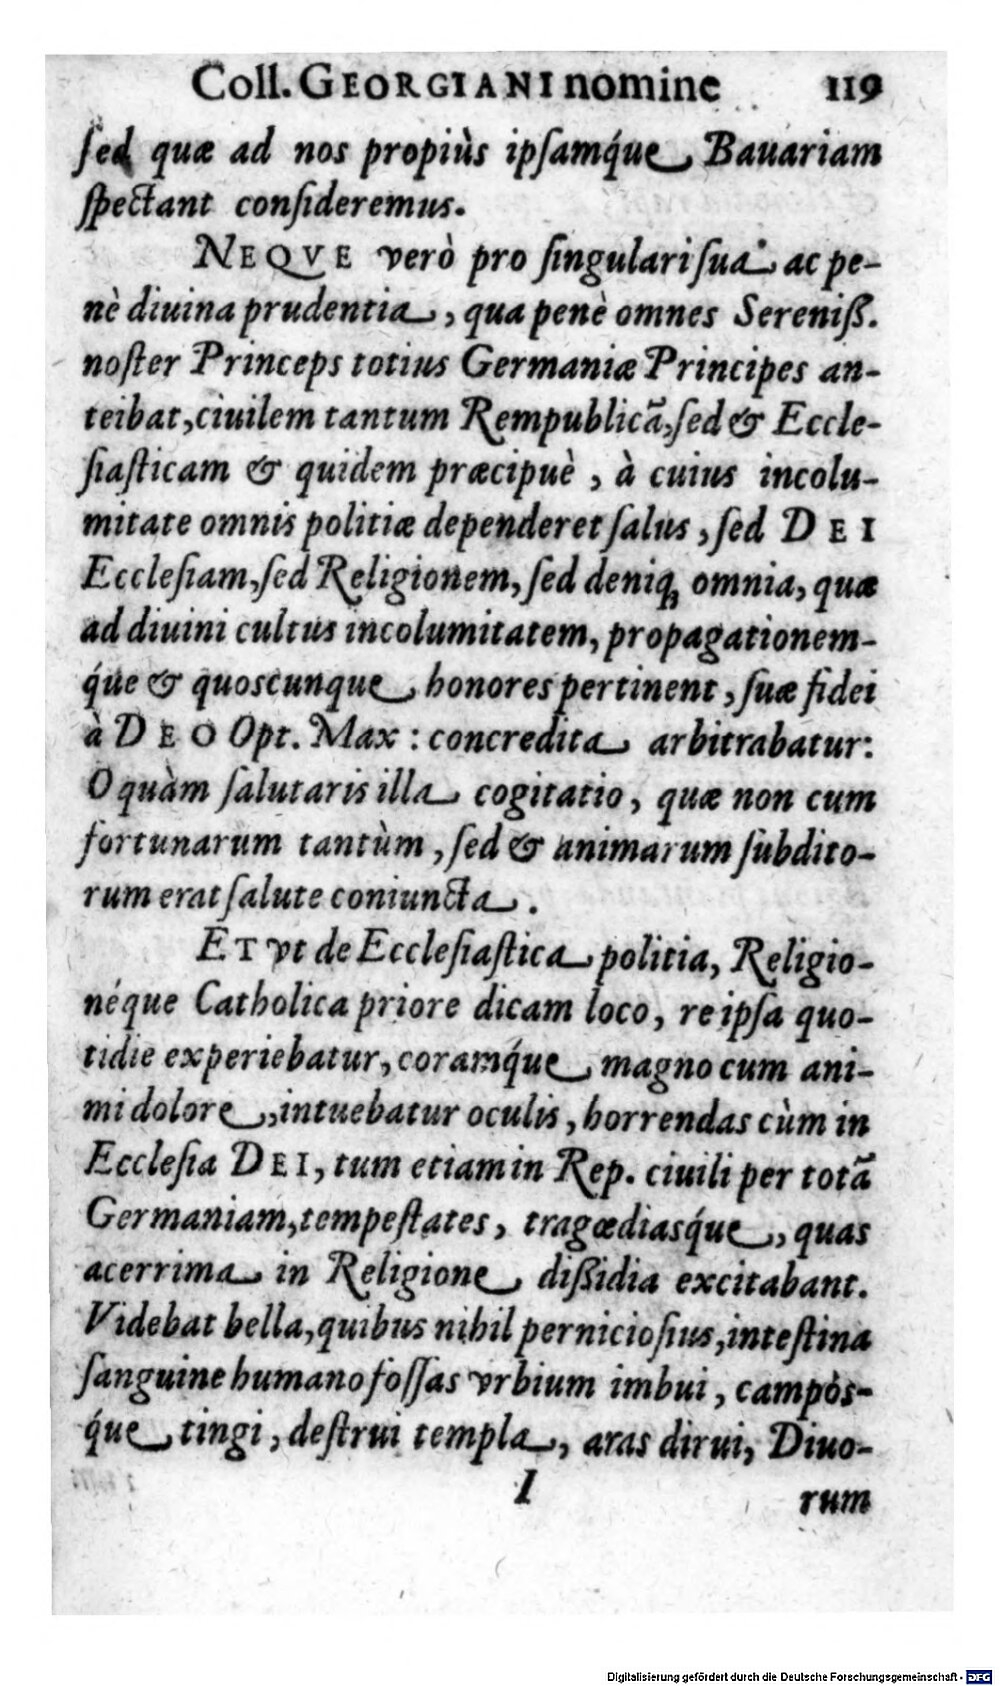 Coll. GEORGIANI nomine 119
ſed quæ ad nos propiùs ipſamq́ue Bauariam
ſpectant conſideremus.
NEQVE verò pro ſingulari ſua ac pe-
nè diuina prudentia, qua penè omnes Sereniß.
noſter Princeps totius Germaniæ Principes an-
teibat, ciuilem tantum Rempublicā, ſed & Eccle-
ſiaſticam & quidem præcipuè, à cuius incolu-
mitate omnis politiæ dependeret ſalus, ſed DEI
Eccleſiam, ſed Religionem, ſed deniq; omnia, quæ
ad diuini cultus incolumitatem, propagationem-
q́ue & quoscunque honores pertinent, ſuæ fidei
à DEO Opt. Max: concredita arbitrabatur:
O quàm ſalutaris illa cogitatio, quæ non cum
fortunarum tantùm, ſed & animarum ſubdito-
rum erat ſalute coniuncta.
ET vt de Eccleſiaſtica politia, Religio-
néque Catholica priore dicam loco, re ipſa quo-
tidie experiebatur, coramq́ue magno cum ani-
mi dolore, intuebatur oculis, horrendas cùm in
Eccleſia DEI, tum etiam in Rep. ciuili per totā
Germaniam, tempeſtates, tragœdiasq́ue, quas
acerrima in Religione dißidia excitabant.
Videbat bella, quibus nihil pernicioſius, inteſtina
ſanguine humano foſſas vrbium imbui, campòs-
q́ue tingi, deſtrui templa, aras dirui, Diuo-
I rum
Digitalisierung gefördert durch die Deutsche Forschungsgemeinschaft - DFG